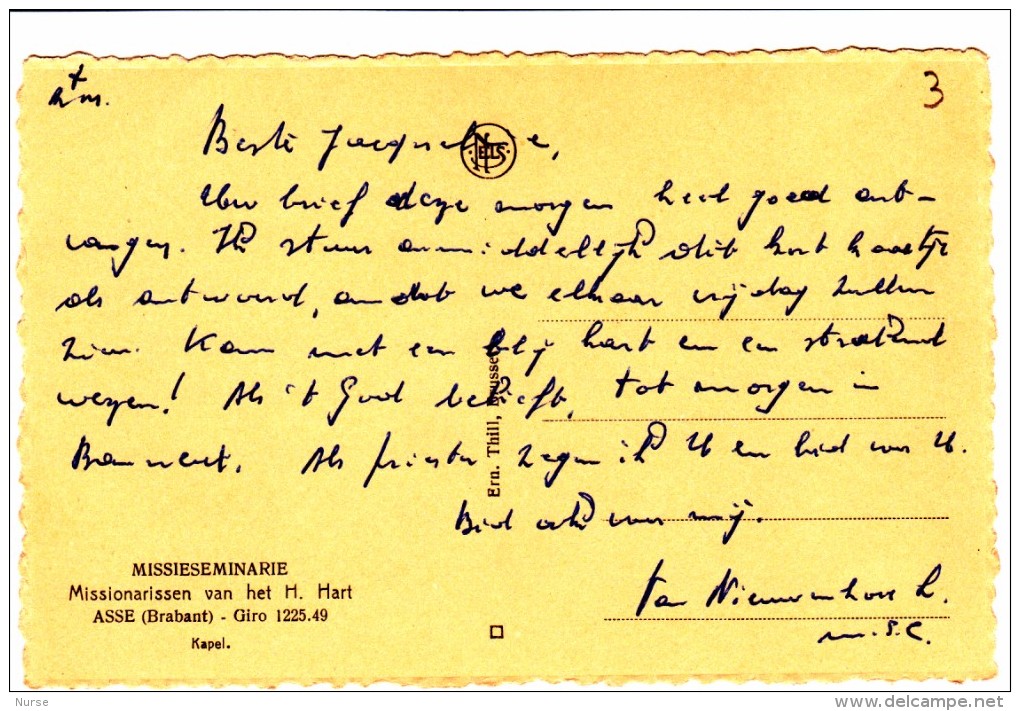 3
Beste
NELS
Uw brief deze morgen heel goed ont-
vangen. Ik stuur onmiddellijk dit kort kaartje
als antwoord, omdat we elkaar vrijdag zullen
zien. Kom met een blij hart en een stralend
wezen! Als 't God belieft, tot morgen in
Als priester zegen ik U en bid voor U.
Bid ook voor mij.
Van Nieuwenhove L.
m.s.c.
Ern. Thill,
MISSIESEMINARIE
Missionarissen van het H. Hart
ASSE (Brabant) - Giro 1225.49
Kapel.
Nurse
delcampe.net